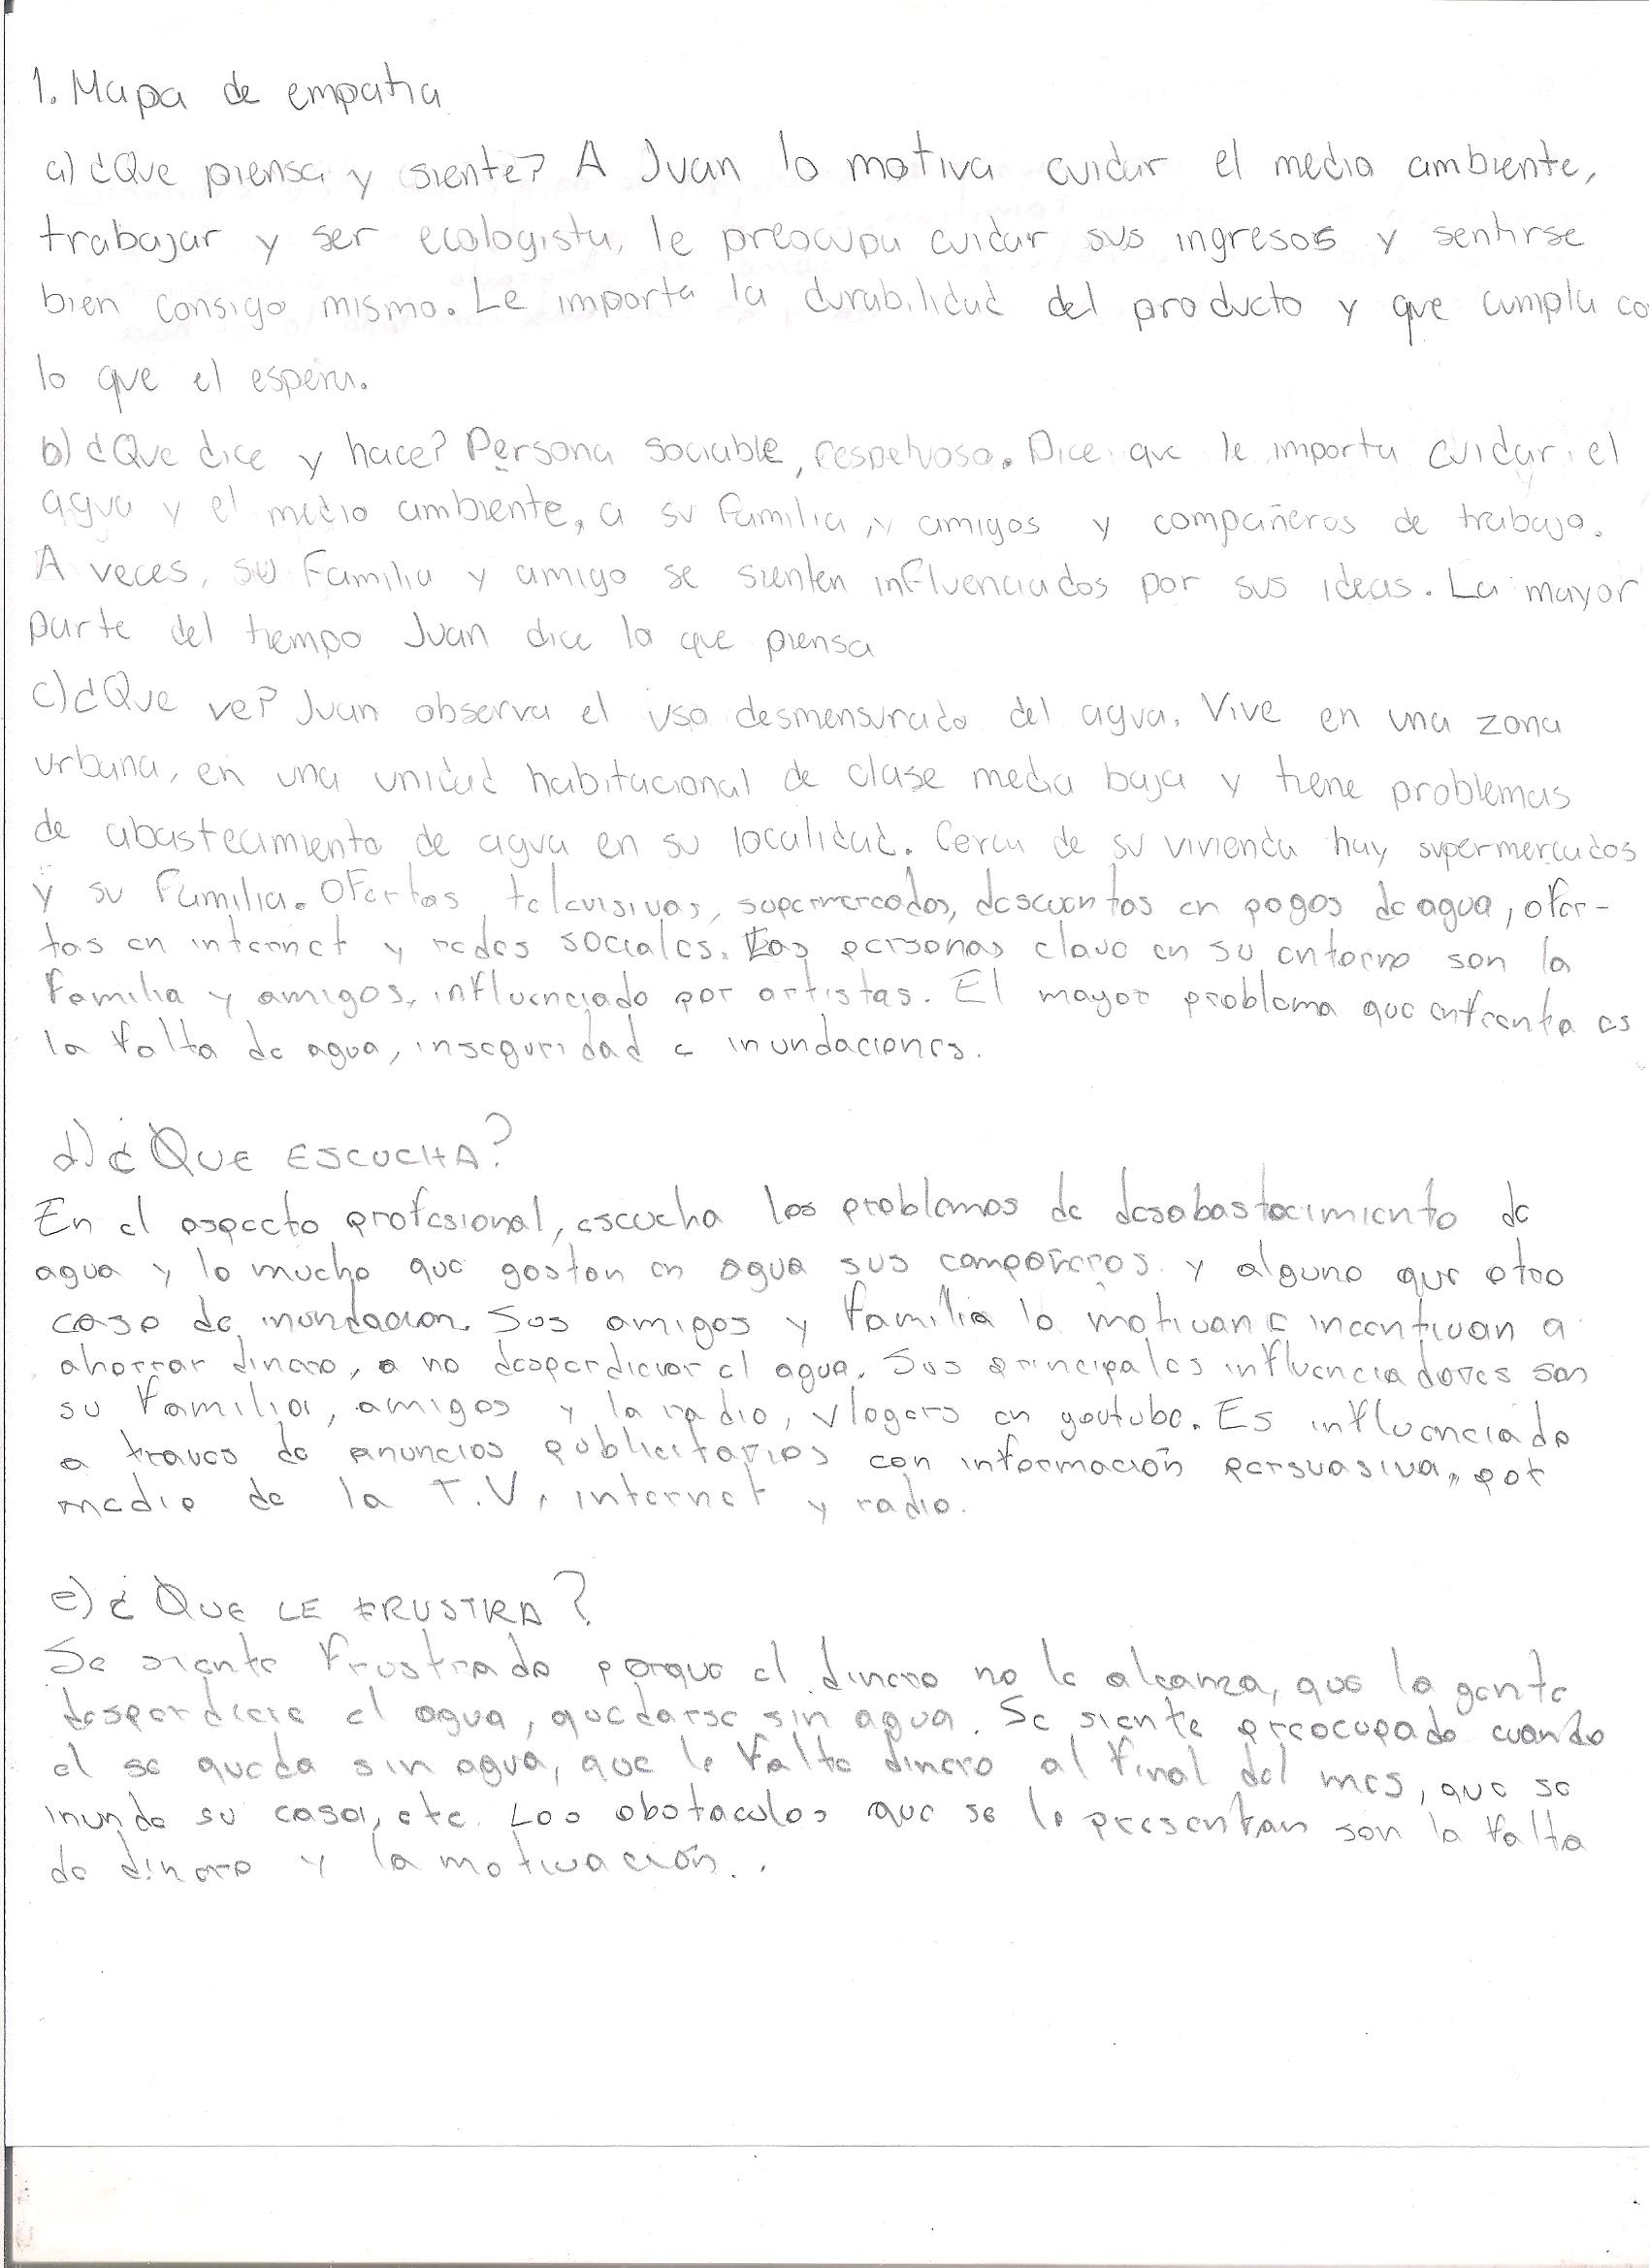 1. Mapa de empatia
a) ¿Que piensa y siente? A Juan lo motiva cuidar el medio ambiente,
trabajar y ser ecologista, le preocupa cuidar sus ingresos y sentirse
bien consigo mismo. Le importa la durabilidad del producto y que cumpla co
lo que el espera.
b) ¿Que dice y hace? Persona sociable, respetuoso. Dice que le importa cuidar el
agua y el medio ambiente, a su familia, y amigos y compañeros de trabajo.
A veces, su familia y amigo se sienten influenciados por sus ideas. La mayor
parte del tiempo Juan dice lo que piensa
c) ¿Que ve? Juan observa el uso desmensurado del agua. Vive en una zona
urbana, en una unidad habitacional de clase media baja y tiene problemas
de abastecimiento de agua en su localidad. Cerca de su vivienda hay supermercados
y su familia. Ofertas televisivas, supermercados, descuentos en pagos de agua, ofer-
tas en internet y redes sociales. Las personas clave en su entorno son la
familia y amigos, influenciado por artistas. El mayor problema que enfrenta es
la falta de agua, inseguridad e inundaciones.
d) ¿QUE ESCUCHA?
En el aspecto profesional, escucha los problemas de desabastecimiento de
agua y lo mucho que gastan en agua sus compañeros y alguno que otro
caso de inundacion. Sus amigos y familia lo motivan e incentivan a
ahorrar dinero, a no desperdiciar el agua. Sus principales influenciadores son
su familia, amigos y la radio, vlogers en youtube. Es influenciado
a traves de anuncios publicitarios con información persuasiva, por
medio de la T.V, internet y radio.
e) ¿QUE LE FRUSTRA?
Se siente frustrado porque el dinero no le alcanza, que la gente
desperdicie el agua, quedarse sin agua. Se siente preocupado cuando
el se queda sin agua, que le falte dinero al final del mes, que se
inunde su casa, etc. Los obstaculos que se le presentan son la falta
de dinero y la motivación.